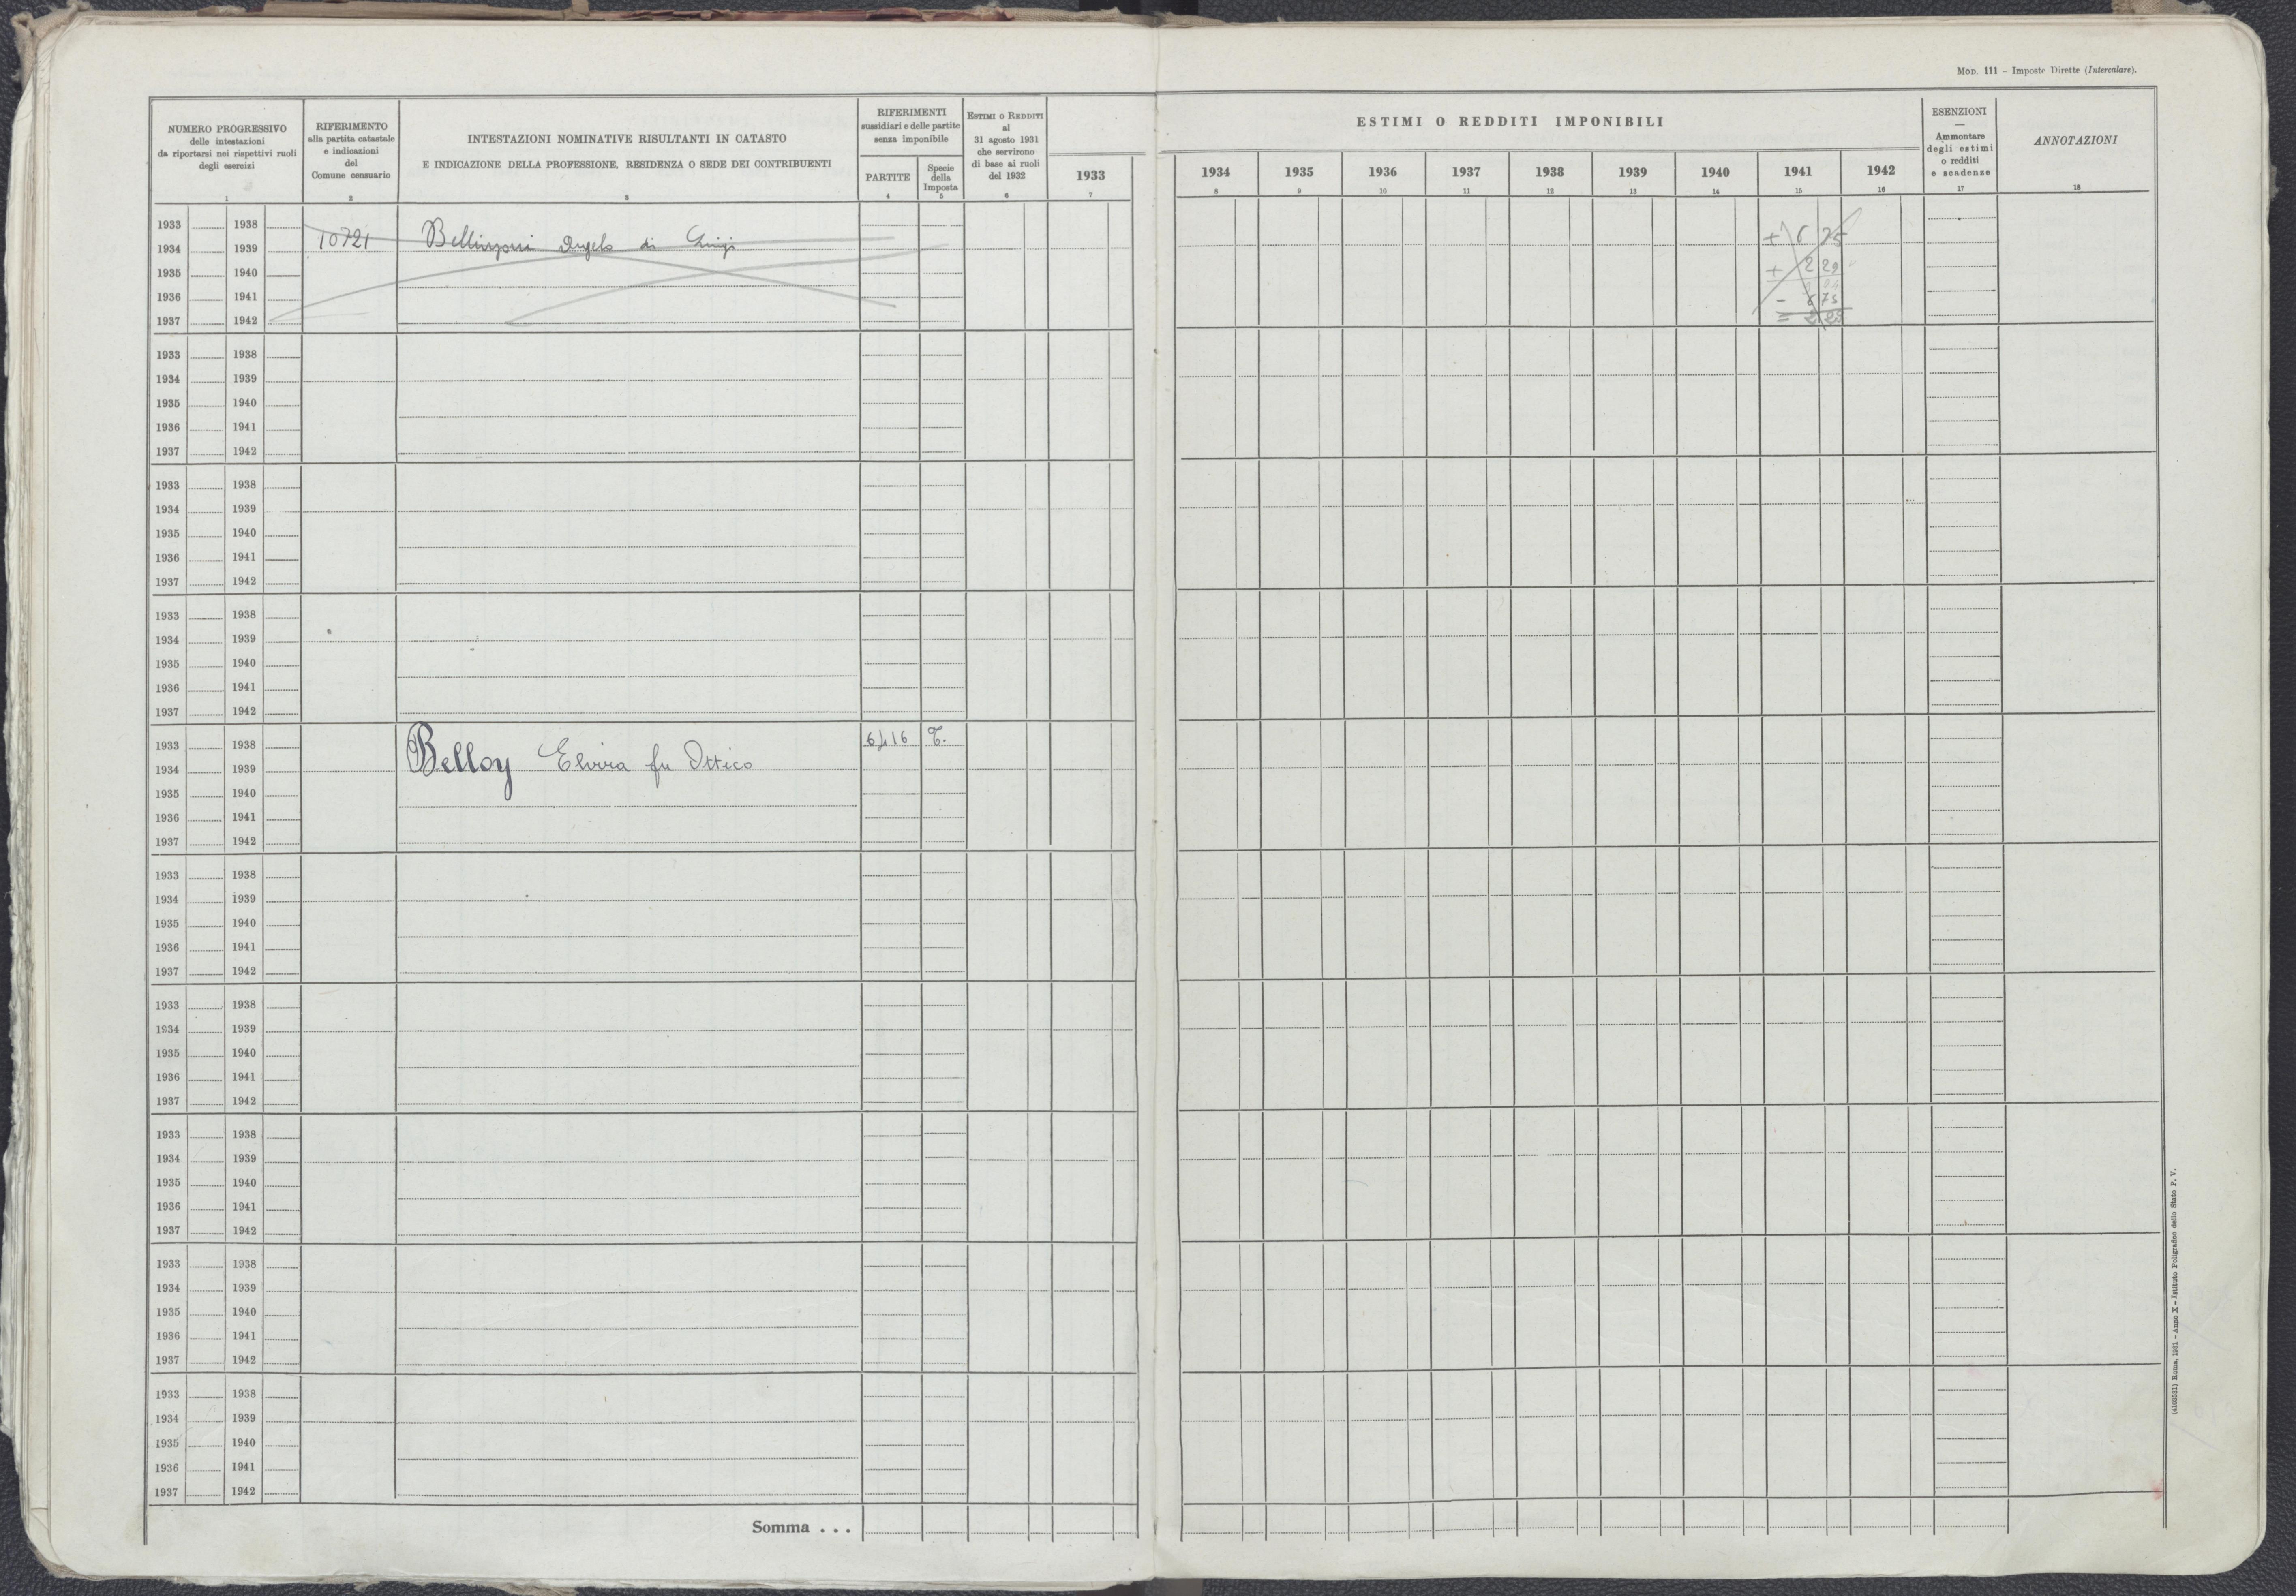 Mod. 111 – Imposte Dirette (Intercalare).
NUMERO PROGRESSIVO
delle intestazioni
da riportarsi nei rispettivi ruoli
degli esercizi
1
RIFERIMENTO
alla partita catastale
e indicazioni
del
Comune censuario
2
INTESTAZIONI NOMINATIVE RISULTANTI IN CATASTO
E INDICAZIONE DELLA PROFESSIONE, RESIDENZA O SEDE DEI CONTRIBUENTI
3
RIFERIMENTI
sussidiari e delle partite
senza imponibile
PARTITE
4
Specie
della
Imposta
5
ESTIMI O REDDITI
al
31 agosto 1931
che servirono
di base ai ruoli
del 1932
6
1933
7
ESTIMI O REDDITI IMPONIBILI
1934 1935 1936 1937 1938 1939 1940 1941 1942
8 9 10 11 12 13 14 15 16
ESENZIONI
—
Ammontare
degli estimi
o redditi
e scadenze
17
ANNOTAZIONI
18
1933 1938
1934 1939 10721 Bellinzoni Angelo di Luigi + 6 75
1935 1940 + 2 29
1936 1941 - 6 75
1937 1942 =
1933 1938
1934 1939
1935 1940
1936 1941
1937 1942
1933 1938
1934 1939
1935 1940
1936 1941
1937 1942
1933 1938
1934 1939
1935 1940
1936 1941
1937 1942
1933 1938 6416 T.
1934 1939 Belloy Elvira fu Ottico
1935 1940
1936 1941
1937 1942
1933 1938
1934 1939
1935 1940
1936 1941
1937 1942
1933 1938
1934 1939
1935 1940
1936 1941
1937 1942
1933 1938
1934 1939
1935 1940
1936 1941
1937 1942
1933 1938
1934 1939
1935 1940
1936 1941
1937 1942
1933 1938
1934 1939
1935 1940
1936 1941
1937 1942
Somma . . .
(4103531) Roma, 1931 – Anno X – Istituto Poligrafico dello Stato P. V.